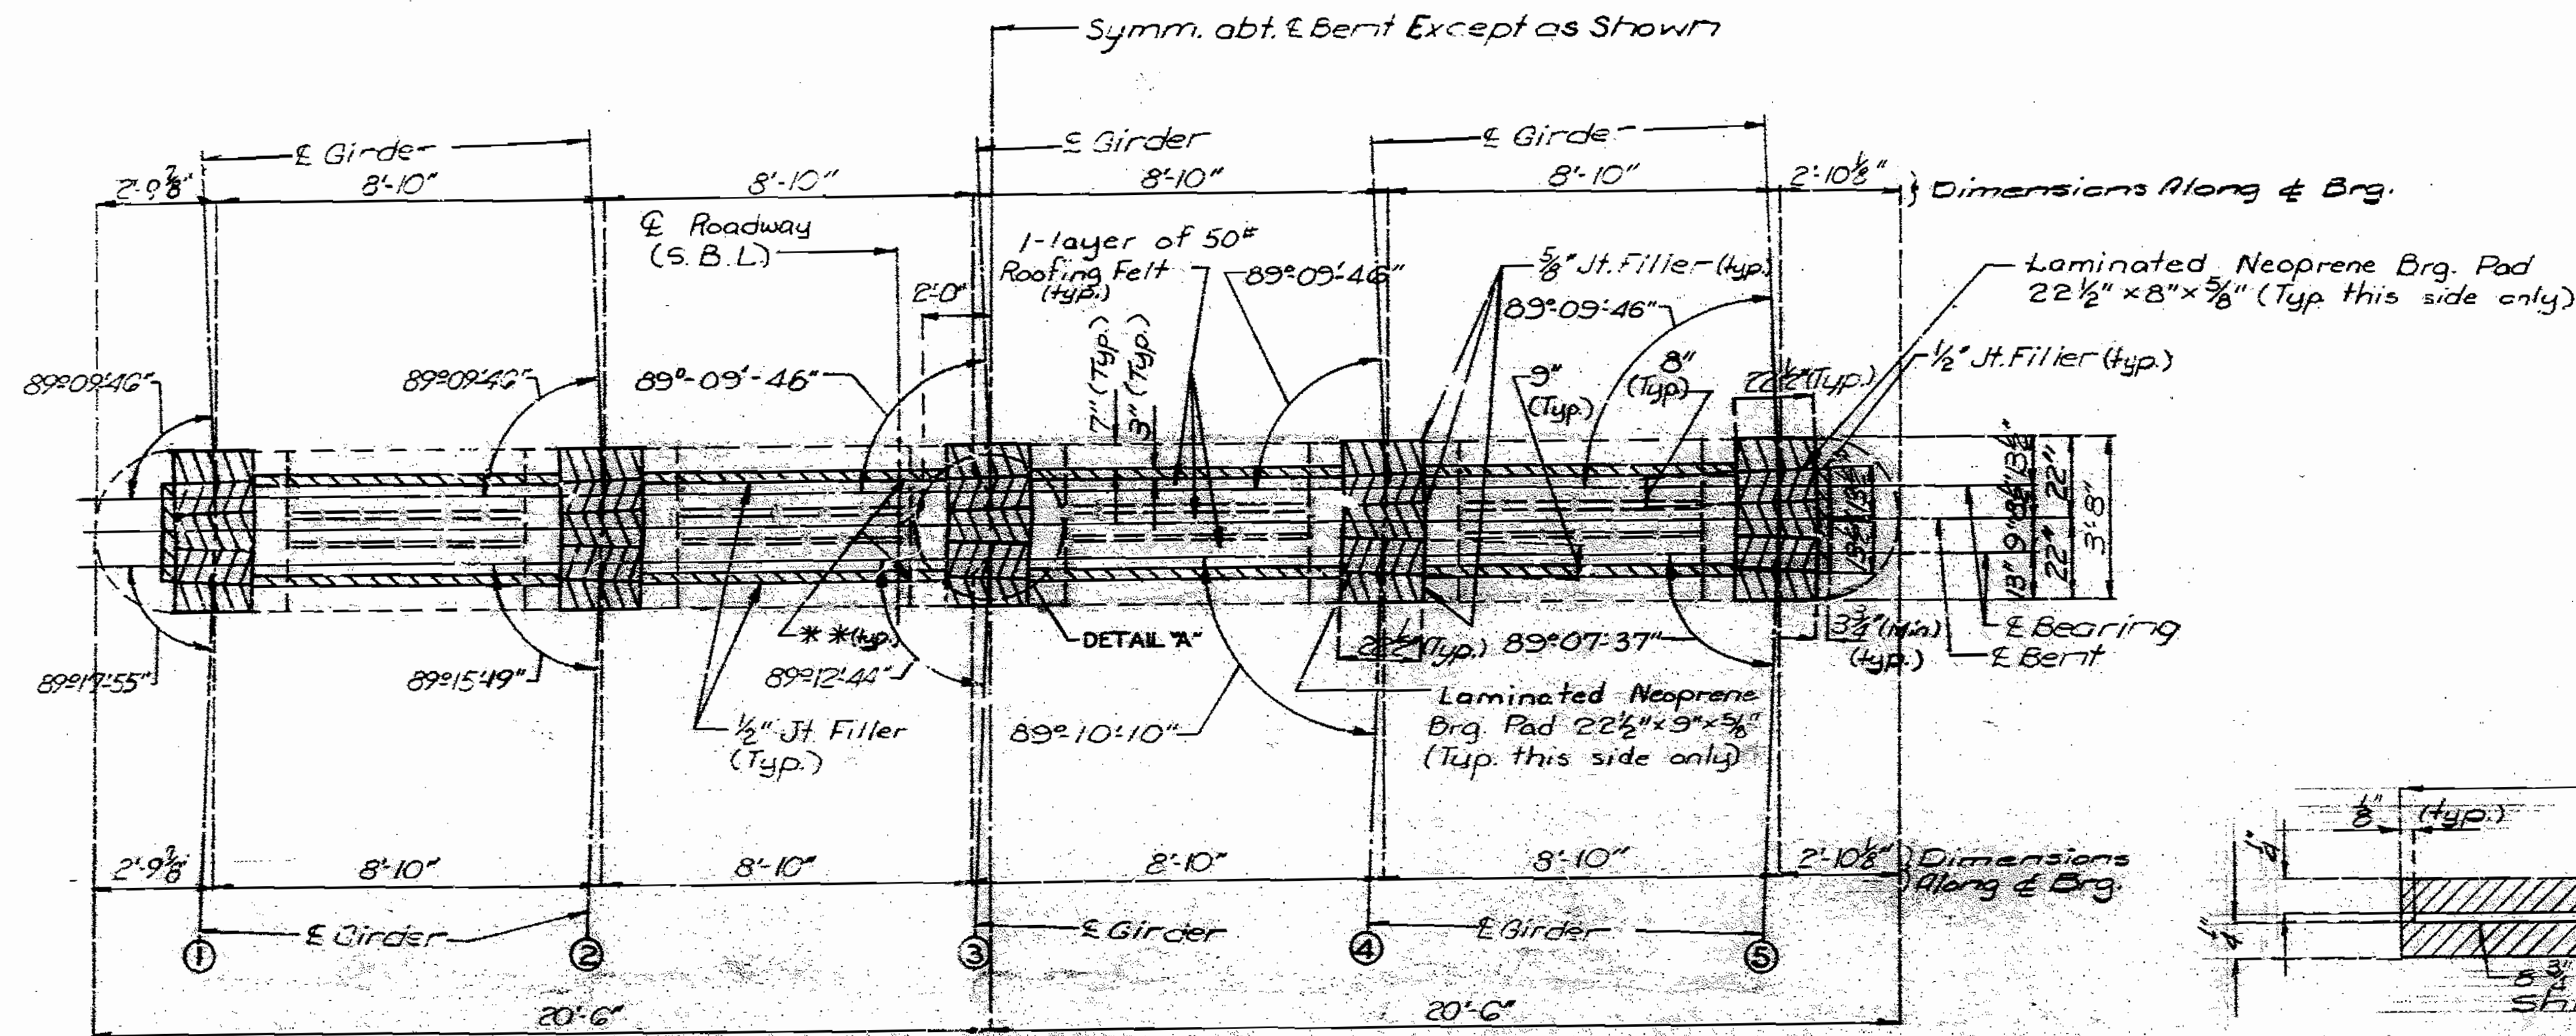 Symm. abt. ℄ Bent Except as Shown
℄ Girder
℄ Girder
℄ Girde
2'-9⅞"
8'-10"
8'-10"
8'-10"
8'-10"
2'-10⅛"
Dimensions Along ℄ Brg.
℄ Roadway
(S.B.L.)
2'-0"
1-layer of 50#
Roofing Felt
(typ.)
89°-09'-46"
⅝" Jt. Filler (typ.)
89°-09'-46"
Laminated Neoprene Brg. Pad
22½" x 8" x ⅝" (Typ. this side only)
½" Jt. Filler (typ.)
89°-09'-46"
89°-09'-46"
89°-09'-46"
7" (Typ.)
3" (Typ.)
9"
(Typ.)
8"
(Typ.)
22½" (Typ.)
13½"
8½"
9"
13"
22"
22"
3'-8"
**(typ.)
DETAIL "A"
22½" (Typ.)
89°-07'-37"
3¾" (Min)
(typ.)
℄ Bearing
℄ Bent
89°-17'-55"
89°-15'-49"
89°-12'-44"
½" Jt. Filler
(Typ.)
89°-10'-10"
Laminated Neoprene
Brg. Pad 22½" x 9" x ⅝"
(Typ. this side only)
2'-9⅞"
8'-10"
8'-10"
8'-10"
8'-10"
2'-10⅛"
Dimensions
Along ℄ Brg.
℄ Girder
℄ Girder
℄ Girder
1
2
3
4
5
20'-6"
20'-6"
⅛"
(typ.)
¼"